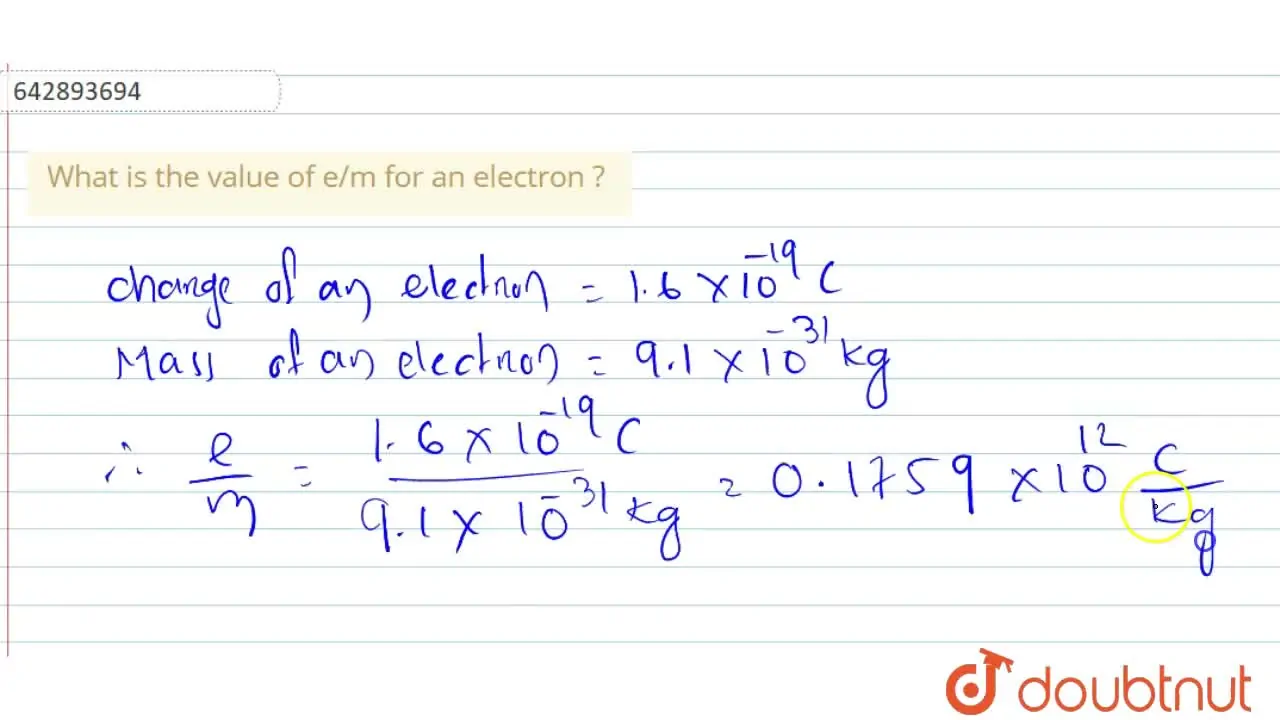 642893694
What is the value of e/m for an electron ?
change of an electron = 1.6 × 10⁻¹⁹ C
Mass of an electron = 9.1 × 10⁻³¹ kg
∴ e/m = 1.6 × 10⁻¹⁹ C / 9.1 × 10⁻³¹ kg = 0.1759 × 10¹² C/kg
doubtnut